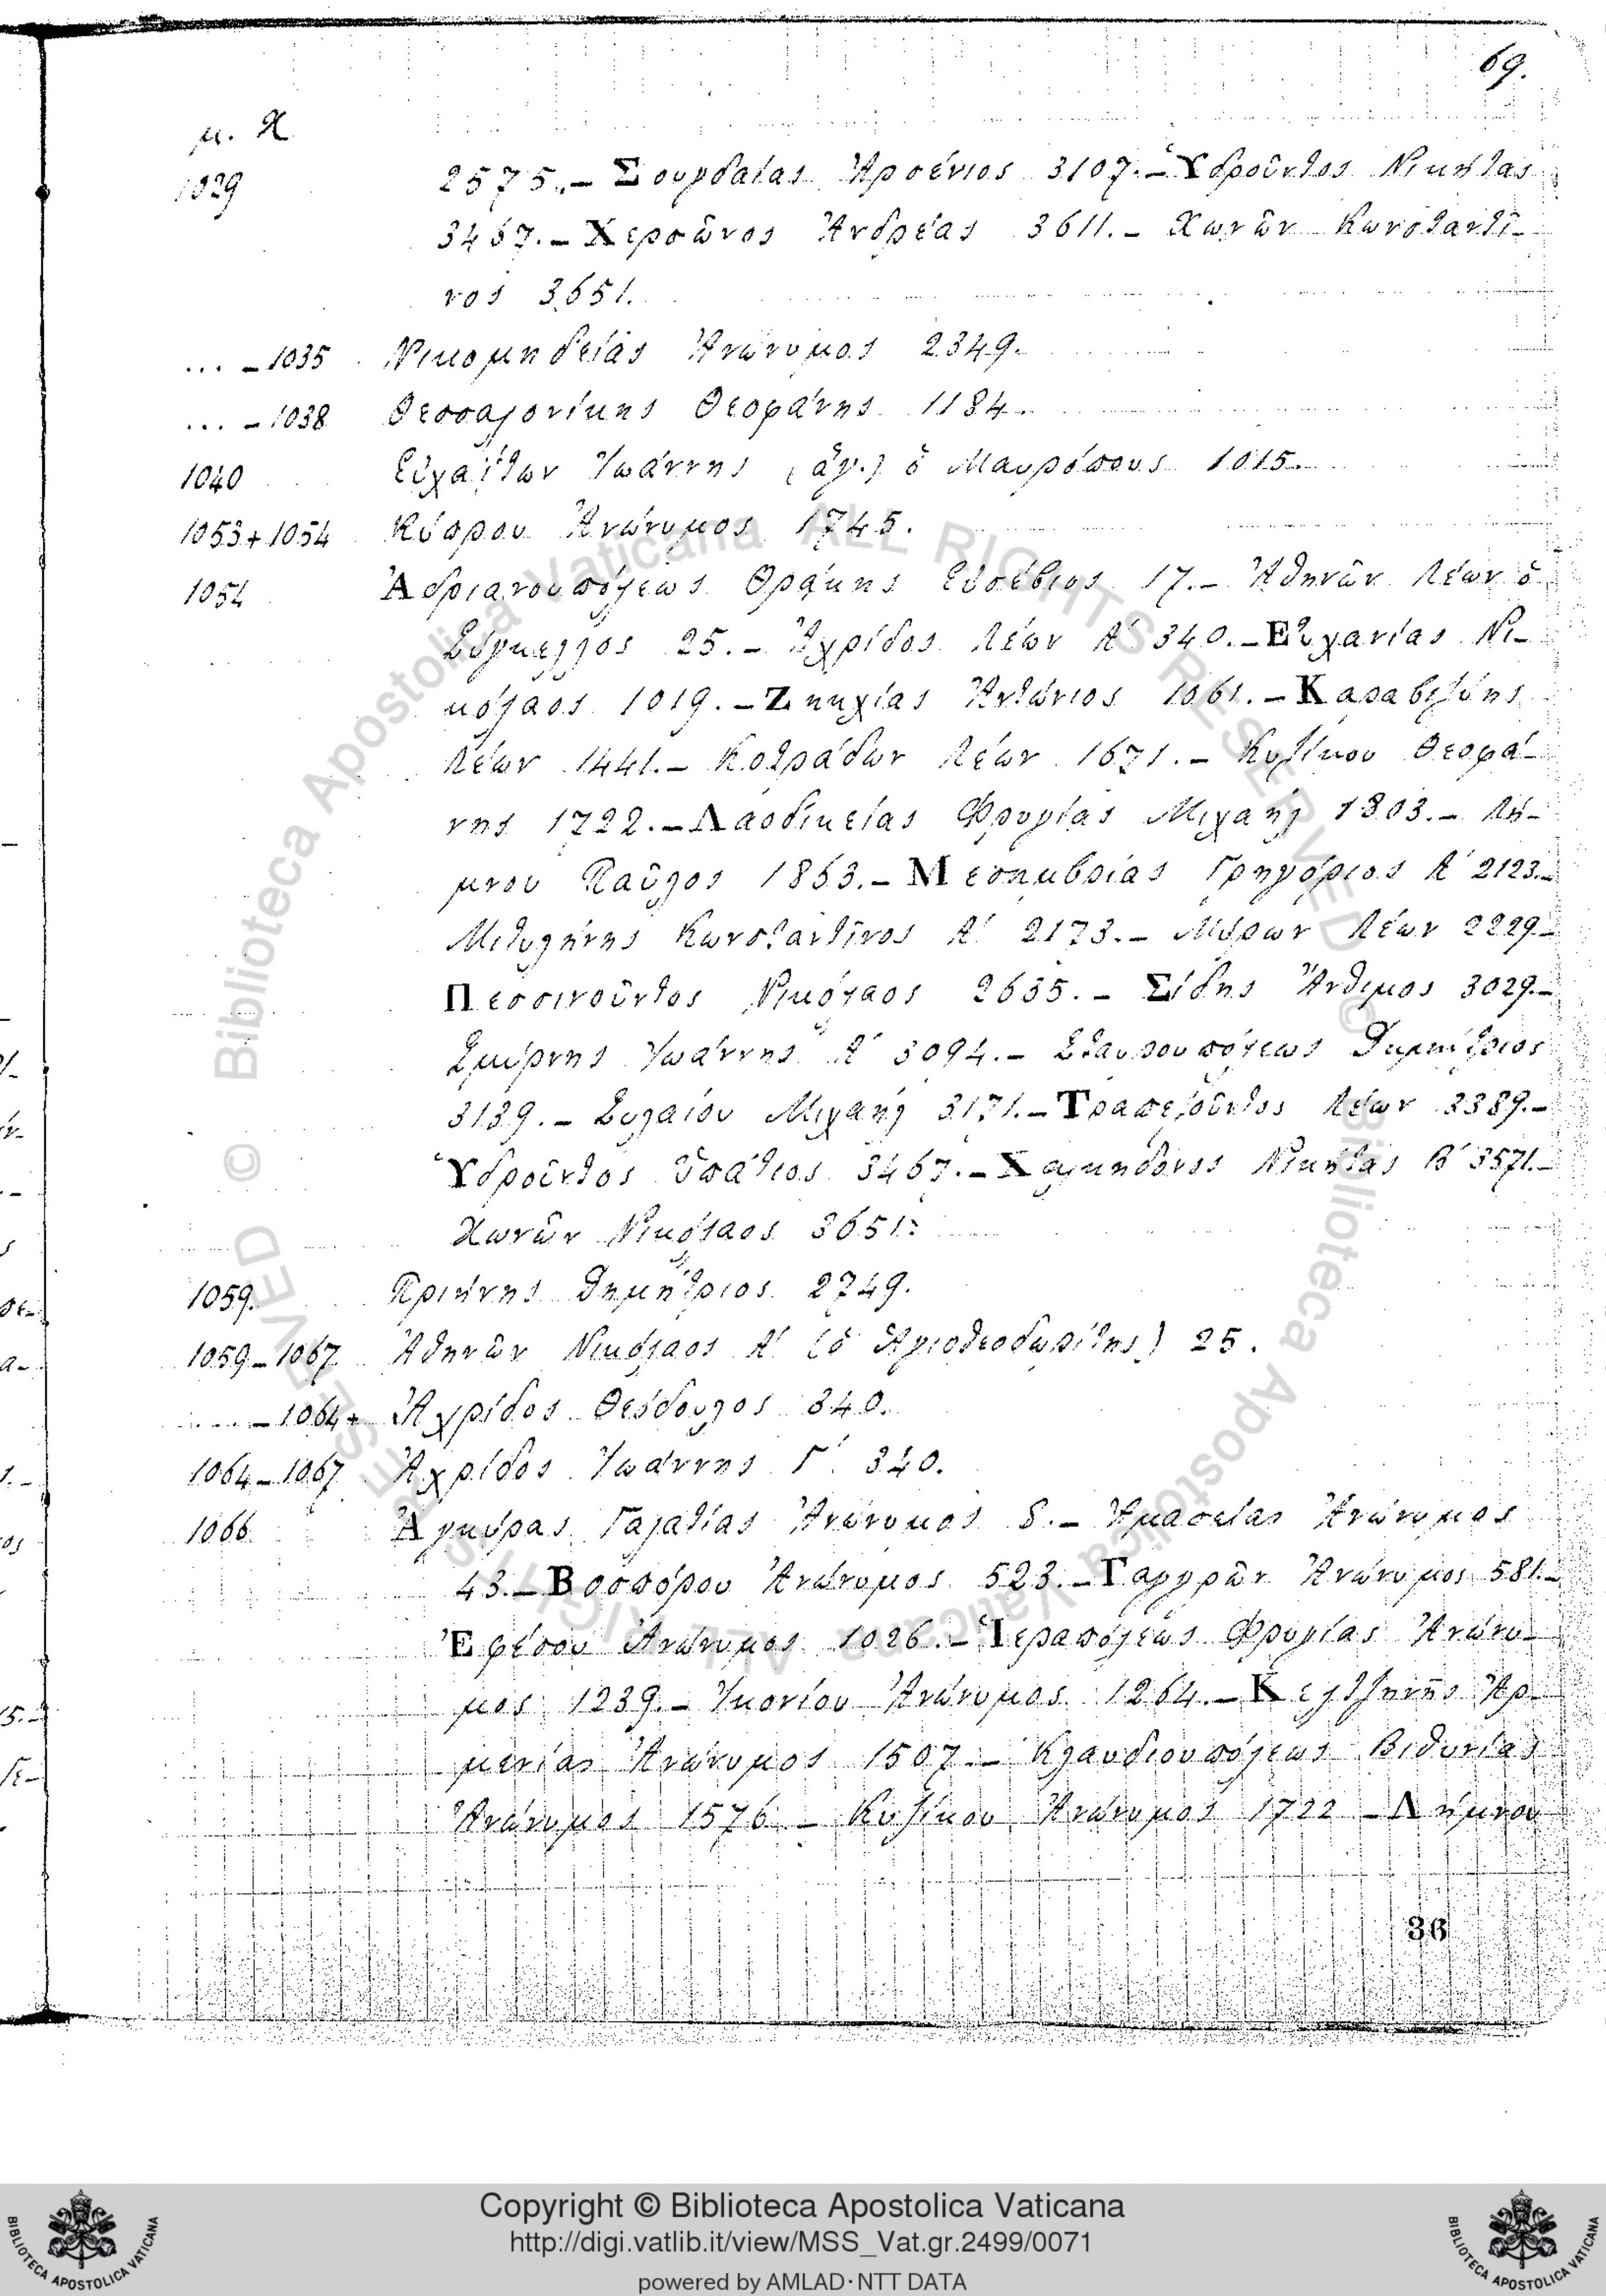 69.
μ. Χ
1029 2575.– Σουγδαίας Ἀρσένιος 3107.– Ὑδροῦντος Νικήτας
3467.– Χερσῶνος Ἀνδρέας 3611.– Χωνῶν Κωνσταντῖ–
νος 3651.
... – 1035 Νικομηδείας Ἀνώνυμος 2349.
... – 1038 Θεσσαλονίκης Θεοφάνης 1184.
1040 Εὐχαΐτων Ἰωάννης (ἅγ.) ὁ Μαυρόπους 1015.
1053+1054 Κύπρου Ἀνώνυμος 1745.
1054 Ἀδριανουπόλεως Θρᾴκης Εὐσέβιος 17.– Ἀθηνῶν Λέων ὁ
Σύγκελλος 25.– Ἀχρίδος Λέων Α΄ 340.– Εὐχανίας Νι–
κόλαος 1019.– Ζηκχίας Ἀντώνιος 1061.– Καραβιζύης
Λέων 1441.– Κοτράδων Λέων 1671.– Κυζίκου Θεοφά–
νης 1722.– Λαοδικείας Φρυγίας Μιχαήλ 1803.– Λή–
μνου Παῦλος 1863.– Μεσημβρίας Γρηγόριος Α΄ 2123.–
Μιτυλήνης Κωνσταντῖνος Α΄ 2173.– Μύρων Λέων 2229.–
Πεσσινοῦντος Νικόλαος 2635.– Σίδης Ἄνθιμος 3029.–
Σμύρνης Ἰωάννης Α΄ 3094.– Σταυρουπόλεως Δημήτριος
3139.– Συλαίου Μιχαήλ 3171.– Τραπεζοῦντος Λέων 3389.–
Ὑδροῦντος Ὑπάτιος 3467.– Χαλκηδόνος Νικήτας Β΄ 3571.–
Χωνῶν Νικόλαος 3651.
1059. Πριήνης Δημήτριος 2749.
1059–1067 Ἀθηνῶν Νικόλαος Α΄ (ὁ Ἁγιοθεοδωρίτης) 25.
.... – 1064+ Ἀχρίδος Θεόδουλος 340.
1064–1067 Ἀχρίδος Ἰωάννης Γ΄ 340.
1066 Ἀγκύρας Γαλατίας Ἀνώνυμος 8.– Ἀμασείας Ἀνώνυμος
43.– Βοσπόρου Ἀνώνυμος 523.– Γαγγρῶν Ἀνώνυμος 581.–
Ἐφέσου Ἀνώνυμος 1026.– Ἱεραπόλεως Φρυγίας Ἀνώνυ–
μος 1239.– Ἰκονίου Ἀνώνυμος 1264.– Κελτζηνῆς Ἀρ–
μενίας Ἀνώνυμος 1507.– Κλαυδιουπόλεως Βιθυνίας
Ἀνώνυμος 1576.– Κυζίκου Ἀνώνυμος 1722 – Λήμνου
36
© Biblioteca Apostolica Vaticana ALL RIGHTS RESERVED
© Biblioteca Apostolica Vaticana ALL RIGHTS RESERVED
Copyright © Biblioteca Apostolica Vaticana
http://digi.vatlib.it/view/MSS_Vat.gr.2499/0071
powered by AMLAD·NTT DATA
BIBLIOTECA APOSTOLICA VATICANA
BIBLIOTECA APOSTOLICA VATICANA